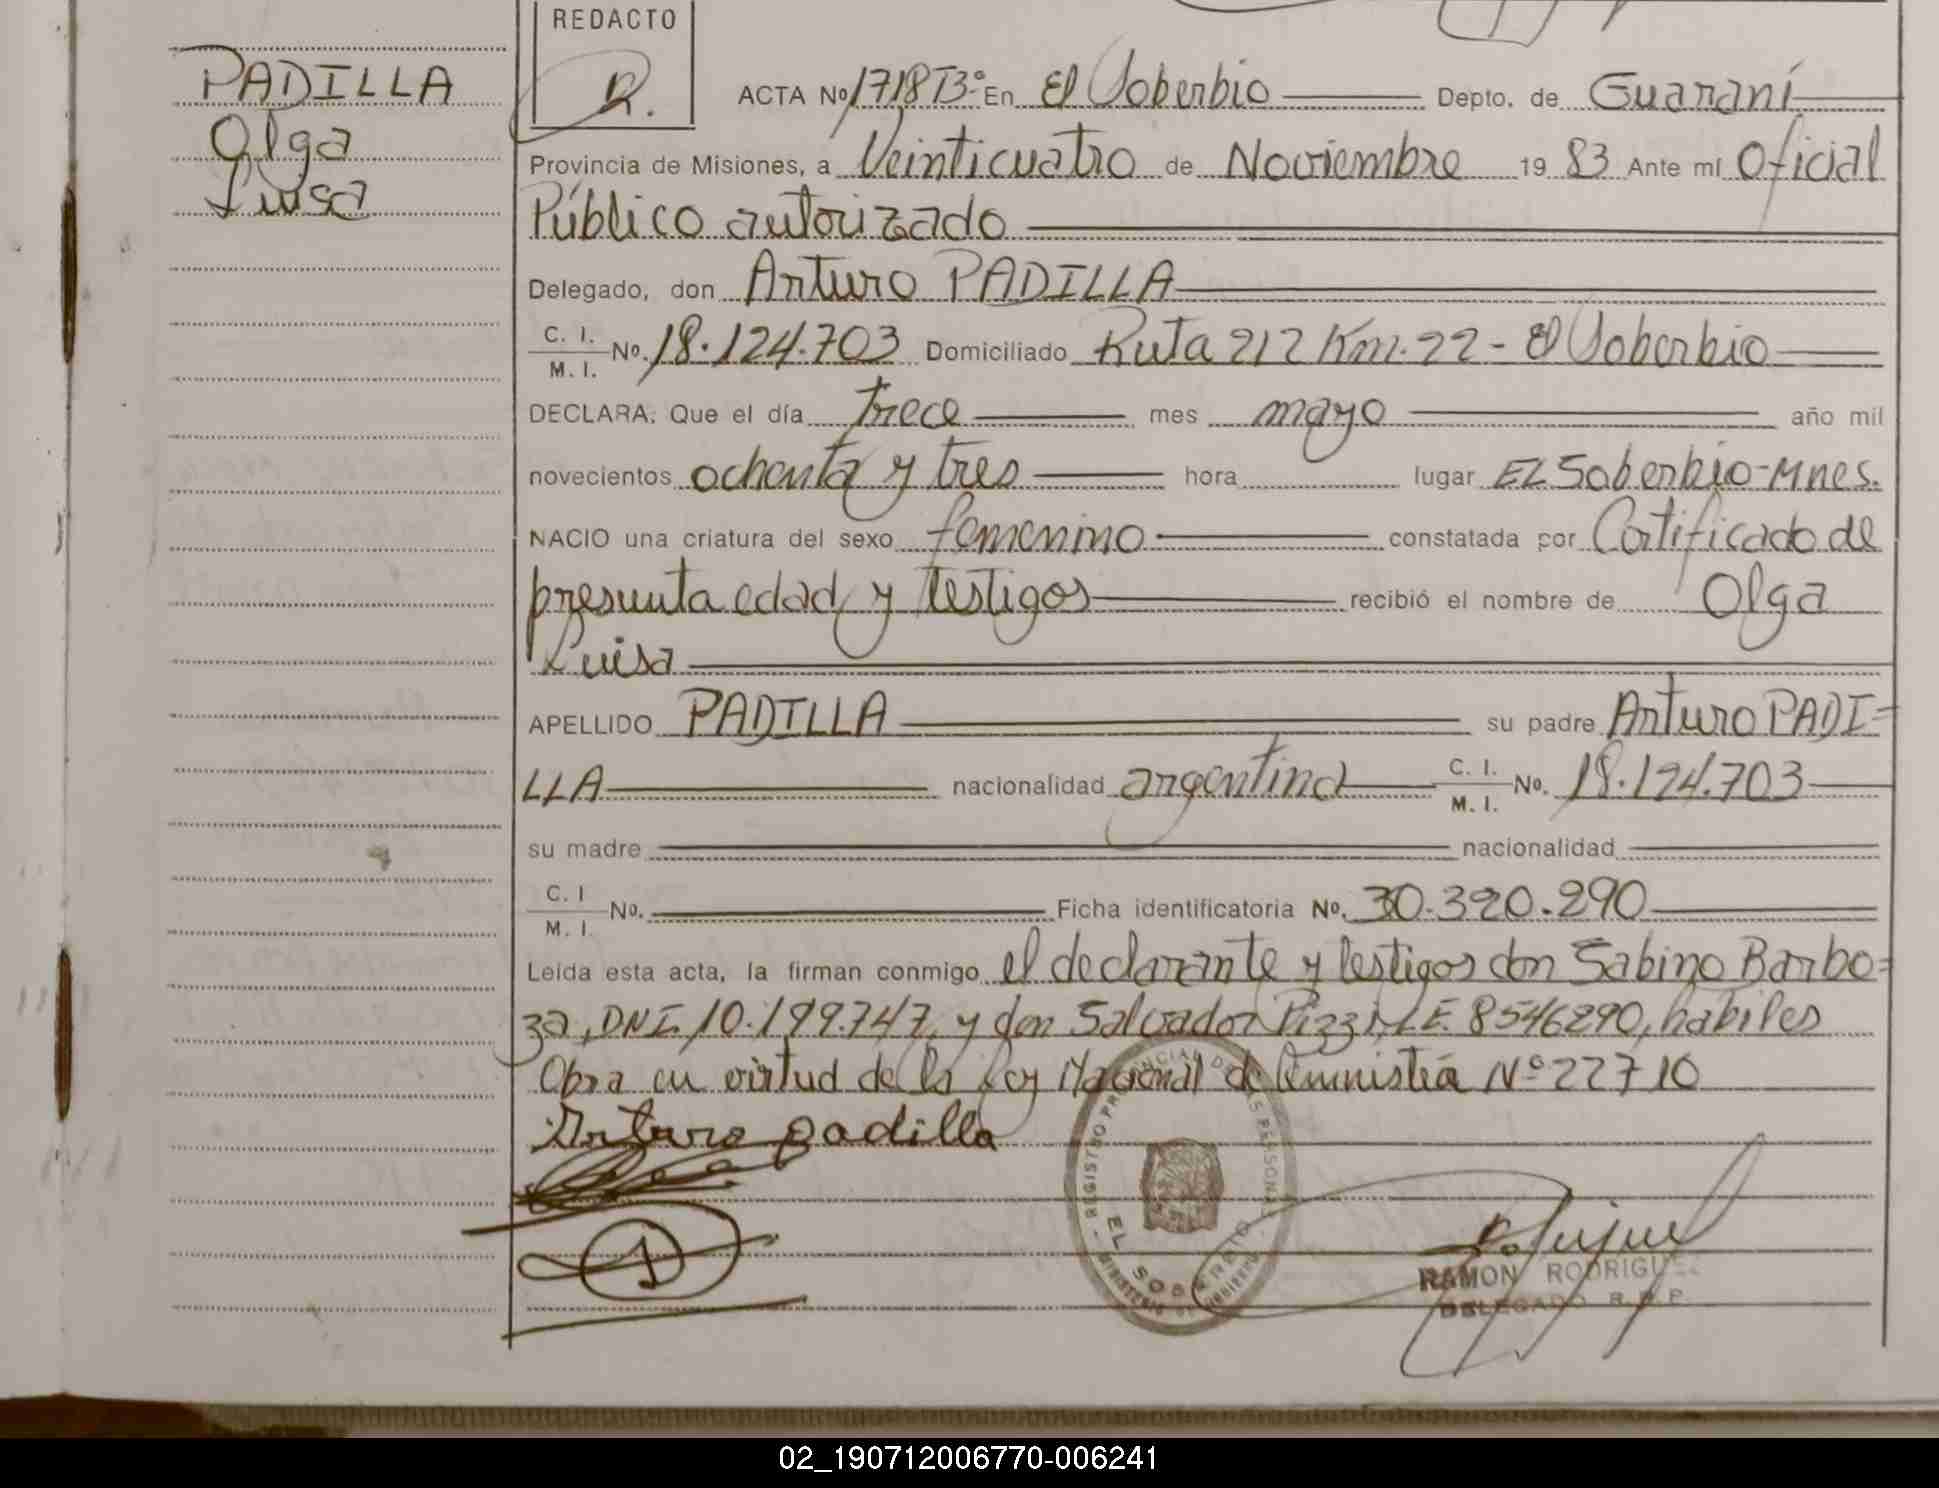 REDACTO
R.
PADILLA
Olga
Luisa
ACTA Nº 1718 T3º En El Soberbio Depto. de Guaraní
Provincia de Misiones, a Veinticuatro de Noviembre 19 83 Ante mí Oficial
Público autorizado
Delegado, don Arturo PADILLA
C. I.
M. I. Nº. 18.124.703 Domiciliado Ruta 212 Km. 22 - El Soberbio
DECLARA: Que el día trece mes mayo año mil
novecientos ochenta y tres hora lugar EL Soberbio-Mnes.
NACIO una criatura del sexo femenino constatada por Certificado de
presunta edad y testigos recibió el nombre de Olga
Luisa
APELLIDO PADILLA su padre Arturo PADI-
LLA nacionalidad argentina C. I. M. I. Nº. 18.124.703
su madre nacionalidad
C. I M. I. Nº. Ficha identificatoria Nº. 30.320.290
Leída esta acta, la firman conmigo el declarante y testigos don Sabino Barbo=
za, DNI. 10.199.747, y don Salvador Pizzi, L.E. 8546290, habiles
Obra en virtud de la Ley Nacional de Amnistía Nº 22710
Arturo padilla
REGISTRO PROVINCIAL DE LAS PERSONAS
EL SOBERBIO
MINISTERIO DE GOBIERNO
RAMON RODRIGUEZ
DELEGADO R. P. P.
02_190712006770-006241